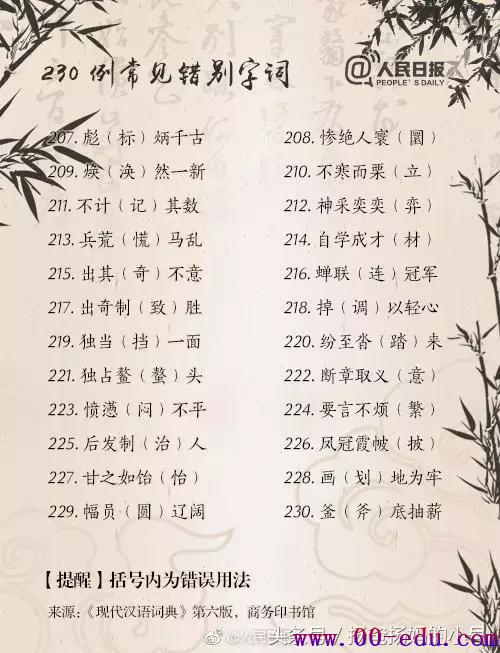 230例常见错别字词
@人民日报
PEOPLE'S DAILY
207. 彪（标）炳千古
208. 惨绝人寰（圜）
209. 焕（涣）然一新
210. 不寒而栗（立）
211. 不计（记）其数
212. 神采奕奕（弈）
213. 兵荒（慌）马乱
214. 自学成才（材）
215. 出其（奇）不意
216. 蝉联（连）冠军
217. 出奇制（致）胜
218. 掉（调）以轻心
219. 独当（挡）一面
220. 纷至沓（踏）来
221. 独占鳌（螯）头
222. 断章取义（意）
223. 愤懑（闷）不平
224. 要言不烦（繁）
225. 后发制（治）人
226. 凤冠霞帔（披）
227. 甘之如饴（怡）
228. 画（划）地为牢
229. 幅员（圆）辽阔
230. 釜（斧）底抽薪
【提醒】括号内为错误用法
来源：《现代汉语词典》第六版，商务印书馆
@人民
www.00-edu.com